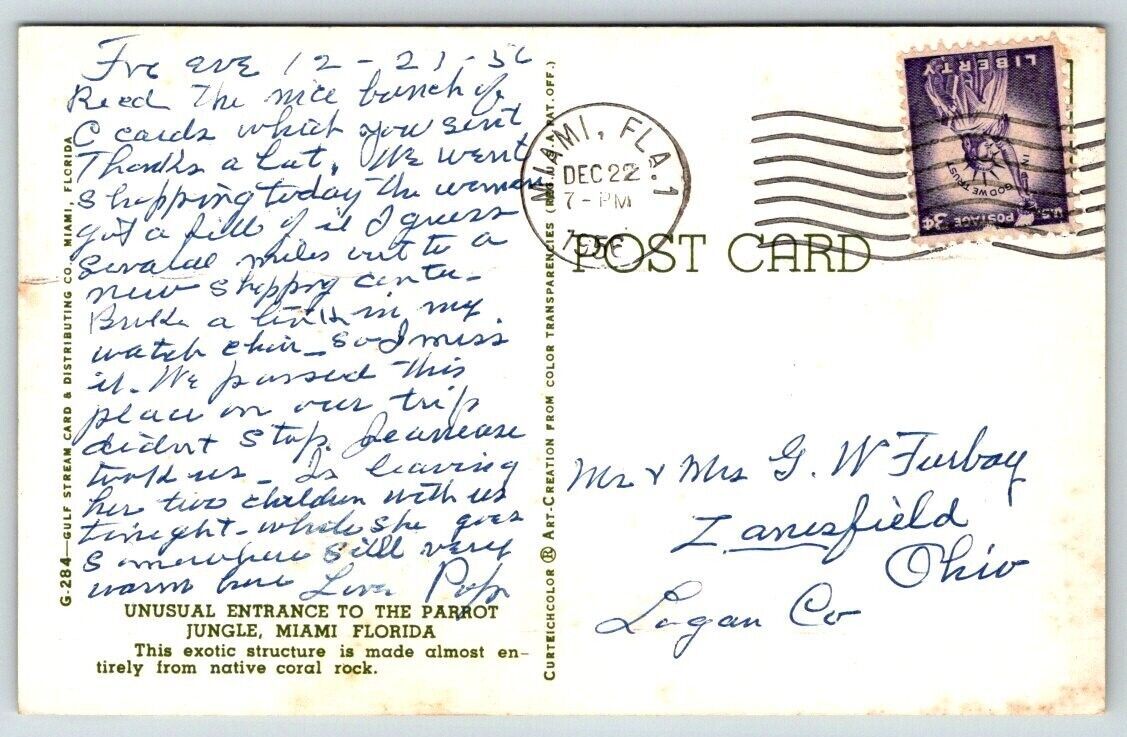 Fri eve 12-21-56
Recd The nice bunch of
C cards which you sent
Thanks a lot. We went
shopping today the women
got a fill of it I guess
several miles out to a
new shoppng cente
Broke a link in my
watch chin - so I miss
it. We passed this
place on our trip
didnt stop.
took us - Is leaving
her two children with us
tonight - while she goes
somewhere still very
warm here Love Pop
UNUSUAL ENTRANCE TO THE PARROT
JUNGLE, MIAMI FLORIDA
This exotic structure is made almost en-
tirely from native coral rock.
G-284—GULF STREAM CARD & DISTRIBUTING CO. MIAMI, FLORIDA
CURTEICHCOLOR ® ART-CREATION FROM COLOR TRANSPARENCIES (REG. U.S.A. PAT. OFF.)
MIAMI, FLA. 1
DEC 22
7-PM
1956
POST CARD
LIBERTY
IN GOD WE TRUST
U.S. POSTAGE 3¢
Mr & Mrs G. W Furbay
Zanesfield
Ohio
Logan Co